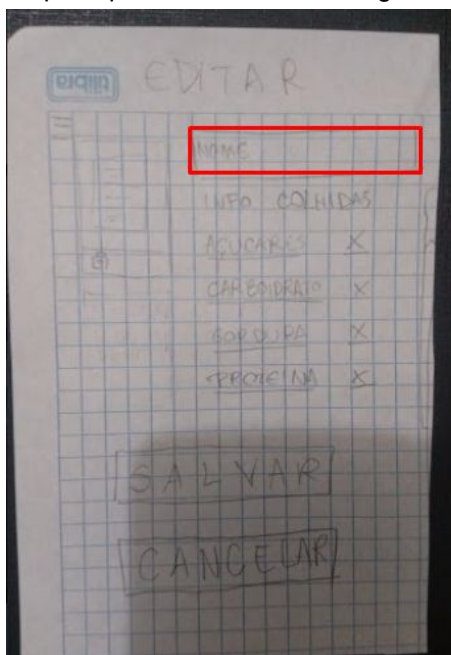 tilibra
EDITAR
NAME
INFO COLHIDAS
AÇUCARES X
CARBOIDRATO X
GORDURA X
PROTEINA X
SALVAR
CANCELAR